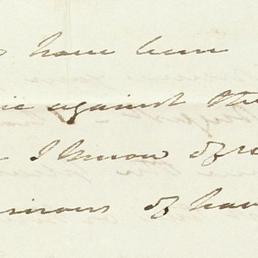 have been
against the
I know of
of hav